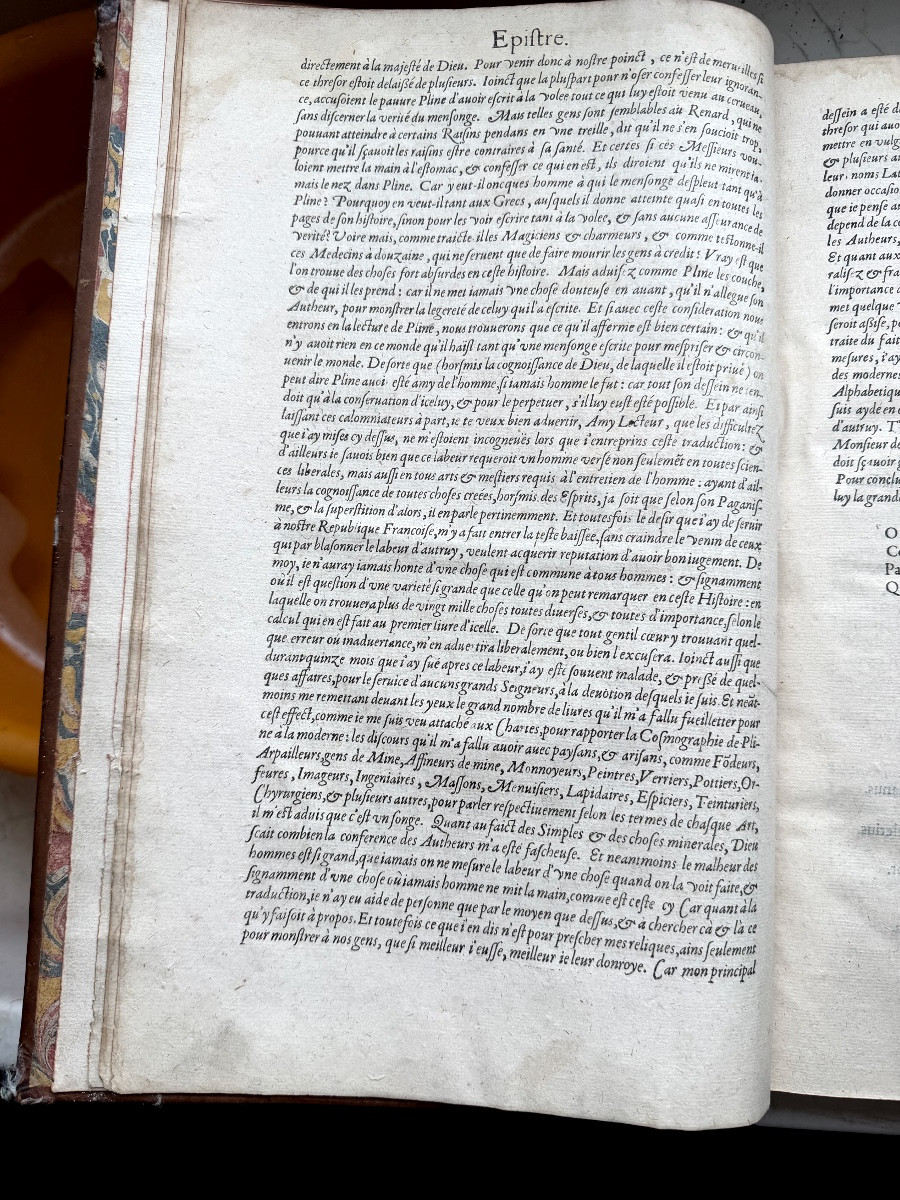 Epiſtre.
directement à la majeſté de Dieu. Pour venir donc à noſtre poinct, ce n'eſt de merueilles ſi
ce threſor eſtoit delaiſsé de pluſieurs. Ioinct que la pluſpart pour n'oſer confeſſer leur ignoran-
ce, accuſoient le pauure Pline d'auoir eſcrit à la volee tout ce qui luy eſtoit venu au cerueau,
ſans diſcerner la verité du menſonge. Mais telles gens ſont ſemblables au Renard, qui ne
pouuant atteindre à certains Raiſins pendans en vne treille, dit qu'il ne s'en ſoucioit trop,
pource qu'il ſçauoit les raiſins eſtre contraires à ſa santé. Et certes ſi ces Meſſieurs vou-
loient mettre la main à l'eſtomac, & confeſſer ce qui en eſt, ils diroient qu'ils ne mirent ia-
mais le nez dans Pline. Car y eut-il oncques homme à qui le menſonge deſpleut tant qu'à
Pline? Pourquoy en veut-il tant aux Grecs, auſquels il donne atteinte quaſi en toutes les
pages de ſon hiſtoire, ſinon pour les voir eſcrire tant à la volee, & ſans aucune aſſeurance de
verité? Voire mais, comme traicte-il les Magiciens & charmeurs, & comme teſtonne-il
ces Medecins à douzaine, qui ne ſeruent que de faire mourir les gens à credit! Vray eſt que
l'on trouue des choſes fort abſurdes en ceſte hiſtoire. Mais aduiſez comme Pline les couche,
& de qui il les prend: car il ne met iamais vne choſe douteuse en auant, qu'il n'allegue ſon
Autheur, pour monſtrer la legereté de celuy qui l'a eſcrite. Et ſi auec ceſte conſideration nous
entrons en la lecture de Pline, nous trouuerons que ce qu'il afferme eſt bien certain: & qu'il
n'y auoit rien en ce monde qu'il haiſt tant qu'vne menſonge eſcrite pour meſpriſer & circon-
uenir le monde. De ſorte que (horſmis la cognoiſſance de Dieu, de laquelle il eſtoit priué) on
peut dire Pline auoir eſté amy de l'homme, ſi iamais homme le fut: car tout ſon deſſein ne ten-
doit qu'à la conſeruation d'iceluy, & pour le perpetuer, s'il luy euſt eſté poſſible. Et par ainſi
laiſſant ces calomniateurs à part, ie te veux bien aduertir, Amy Lecteur, que les difficultez
que i'ay miſes cy deſſus, ne m'eſtoient incogneües lors que i'entreprins ceſte traduction: &
d'ailleurs ie ſauois bien que ce labeur requeroit vn homme versé non ſeulemẽt en toutes ſcien-
ces liberales, mais auſſi en tous arts & meſtiers requis à l'entretien de l'homme: ayant d'ail-
leurs la cognoiſſance de toutes choſes creées, horſmis des Eſprits, ja ſoit que ſelon ſon Paganiſ-
me, & la ſuperſtition d'alors, il en parle pertinemment. Et toutesfois le deſir que i'ay de ſeruir
à noſtre Republique Francoiſe, m'y a fait entrer la teſte baiſsee, ſans craindre le venin de ceux
qui par blaſonner le labeur d'autruy, veulent acquerir reputation d'auoir bon iugement. De
moy, ie n'auray iamais honte d'vne choſe qui eſt commune à tous hommes: & ſignamment
où il eſt queſtion d'vne varieté ſi grande que celle qu'on peut remarquer en ceſte Hiſtoire: en
laquelle on trouuera plus de vingt mille choſes toutes diuerſes, & toutes d'importance, ſelon le
calcul qui en eſt fait au premier liure d'icelle. De ſorte que tout gentil cœur y trouuant quel-
que erreur ou inaduertance, m'en aduertira liberalement, ou bien l'excuſera. Ioinct auſſi que
durant quinze mois que i'ay ſué apres ce labeur, i'ay eſté ſouuent malade, & preſsé de quel-
ques affaires, pour le ſeruice d'aucuns grands Seigneurs, à la deuotion deſquels ie ſuis. Et neãt-
moins me remettant deuant les yeux le grand nombre de liures qu'il m'a fallu fueilletter pour
ceſt effect, comme ie me ſuis veu attaché aux Chartes, pour rapporter la Coſmographie de Pli-
ne à la moderne: les diſcours qu'il m'a fallu auoir auec payſans, & ariſans, comme Fõdeurs,
Arpailleurs, gens de Mine, Affineurs de mine, Monnoyeurs, Peintres, Verriers, Pottiers, Or-
feures, Imageurs, Ingeniaires, Maſſons, Menuiſiers, Lapidaires, Eſpiciers, Teinturiers,
Chyrurgiens, & pluſieurs autres, pour parler reſpectiuement ſelon les termes de chaſque Art,
il m'eſt aduis que c'eſt vn ſonge. Quant au faict des Simples & des choſes minerales, Dieu
ſcait combien la conference des Autheurs m'a eſté faſcheuſe. Et neantmoins le malheur des
hommes eſt ſi grand, que iamais on ne meſure le labeur d'vne choſe quand on la voit faite, &
ſignamment d'vne choſe où iamais homme ne mit la main, comme eſt ceſte cy Car quant à la
traduction, ie n'ay eu aide de perſonne que par le moyen que deſſus, & à chercher cà & là ce
qu'y faiſoit à propos. Et toutefois ce que i'en dis n'eſt pour preſcher mes reliques, ains ſeulement
pour monſtrer à nos gens, que ſi meilleur i'euſſe, meilleur ie leur donroye. Car mon principal
deſſein a eſté d
threſor qui auo
mettre en vulg
& pluſieurs au
leur noms Lat
donner occaſio
que ie penſe a
depend de la c
les Autheurs,
Et quant aux
raliſez & fra
l'importance d
met quelque
ſeroit aſſiſe, p
traite du fait
meſures, i'ay
des modernes
Alphabetiqu
ſuis aydé en
d'autruy. T
Monſieur de
doit ſçauoir g
Pour conclu
luy la grand
O
Ce
Pa
Q